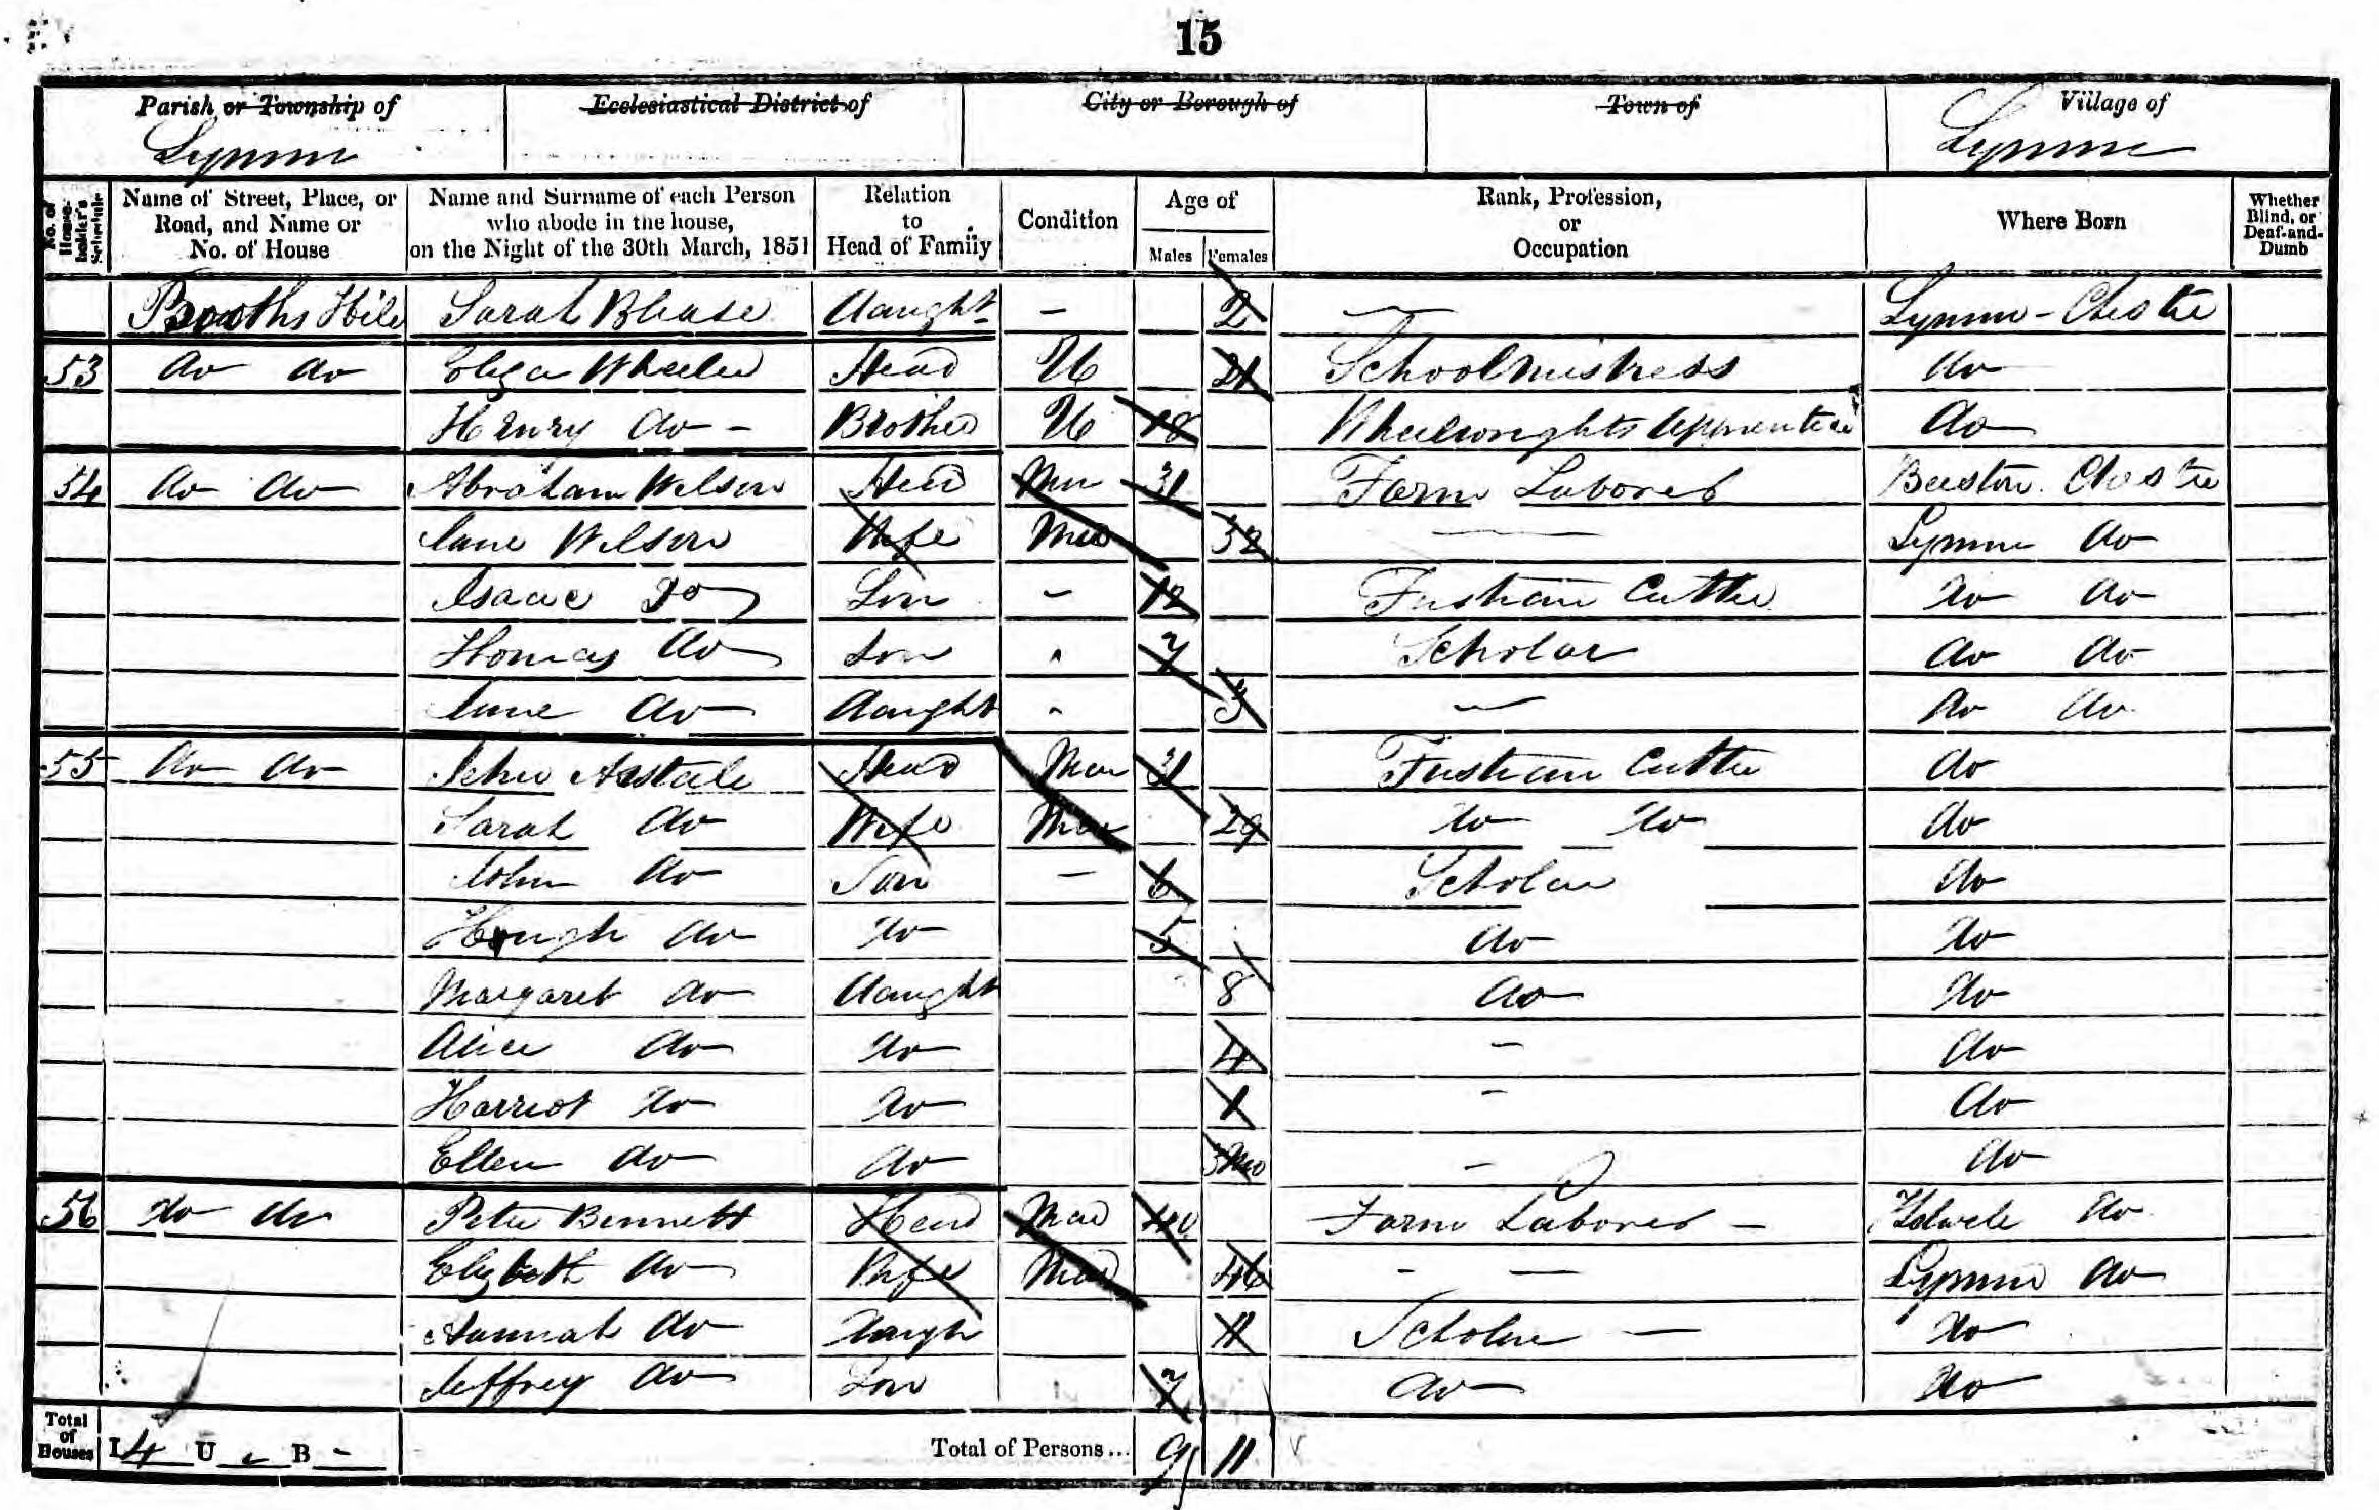 15
Parish or Township of Ecclesiastical District of City or Borough of Town of Village of
Lymm Lymm
No. of House-holder's Schedule Name of Street, Place, or Road, and Name or No. of House Name and Surname of each Person who abode in the house, on the Night of the 30th March, 1851 Relation to Head of Family Condition Age of Males Females Rank, Profession, or Occupation Where Born Whether Blind, or Deaf-and-Dumb
Booths Hill Sarah Blease Daught - 2 - Lymm - Cheshire
53 do do Eliza Wheeler Head U 21 Schoolmistress do
Henry do - Brother U 18 Wheelwrights Apprentice do
54 do do Abraham Wilson Head Mar 31 Farm Laborer Beeston Cheshire
Jane Wilson Wife Mar 32 - Lymm do
Isaac do Son - 12 Fustian Cutter do do
Thomas do Son 7 Scholar do do
Jane do Daught - 3 - do do
55 do do John Head Mar 31 Fustian Cutter do
Sarah do Wife Mar 29 do do do
John do Son - 6 Scholar do
Hough do do 5 do do
Margaret do Daught 8 do do
Alice do do 4 - do
Harriot do do 1 - do
Ellen do do 3Mo - do
56 do do Peter Bennett Head Mar 40 Farm Laborer - do
Elizabeth do Wife Mar 46 - - Lymm do
Hannah do Daugh 11 Scholar - do
Jeffrey do Son 7 do do
Total of Houses I 4 U - B - Total of Persons... 9 11